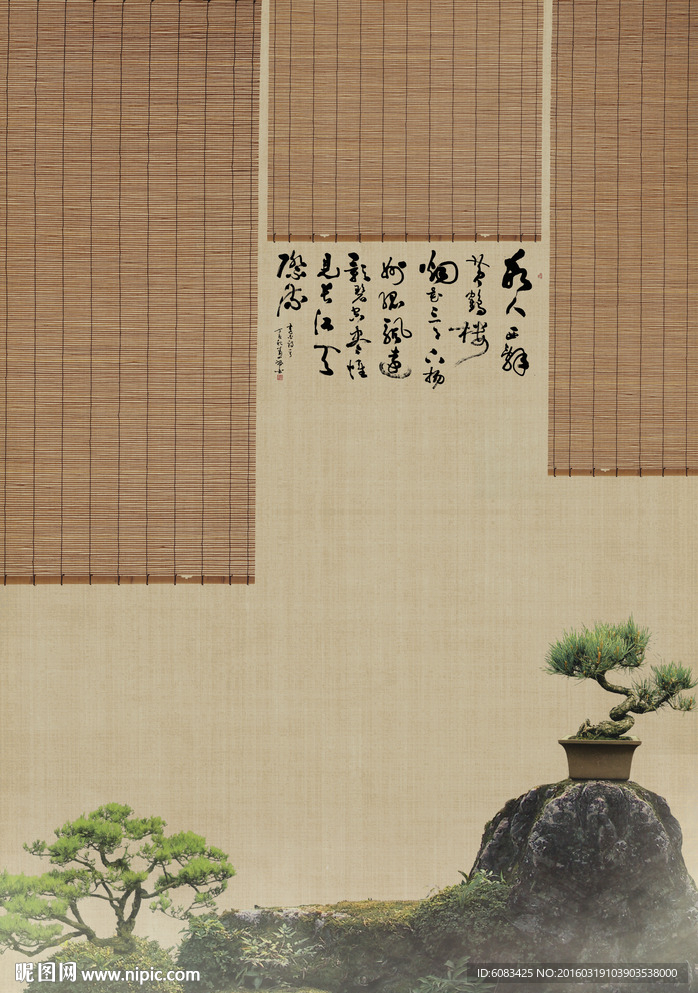 故人西辭
黄鶴楼
烟花三月下扬
州孤帆遠
影碧空尽惟
见长江天
際流
昵图网 www.nipic.com
ID:6083425 NO:20160319103903538000